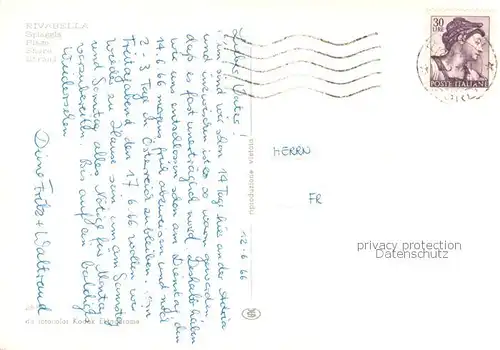 RIVABELLA
Spiaggia
Plage
Shore
Strand
12.6.66
! nun sind wir schon 14 Tage hier an der Adria
und inzwischen ist es so warm geworden,
daß es fast unerträglich wird. Deshalb haben
wir uns entschlossen schon am Dienstag den
14.6.66 morgens früh abzureisen und noch
2-3 Tage in Österreich zu bleiben.
Freitagabend den 17.6.66 wollen wir
wieder zu Hause sein um am Samstag
und Sonntag alles Nötige für Montag
vorzubereiten. Bis auf ein baldiges
Wiedersehen
Deine Fritz + Waltraud
30
LIRE
POSTE ITALIANE
HERRN
FR
privacy protection
Datenschutz
Kodak Ektachrome